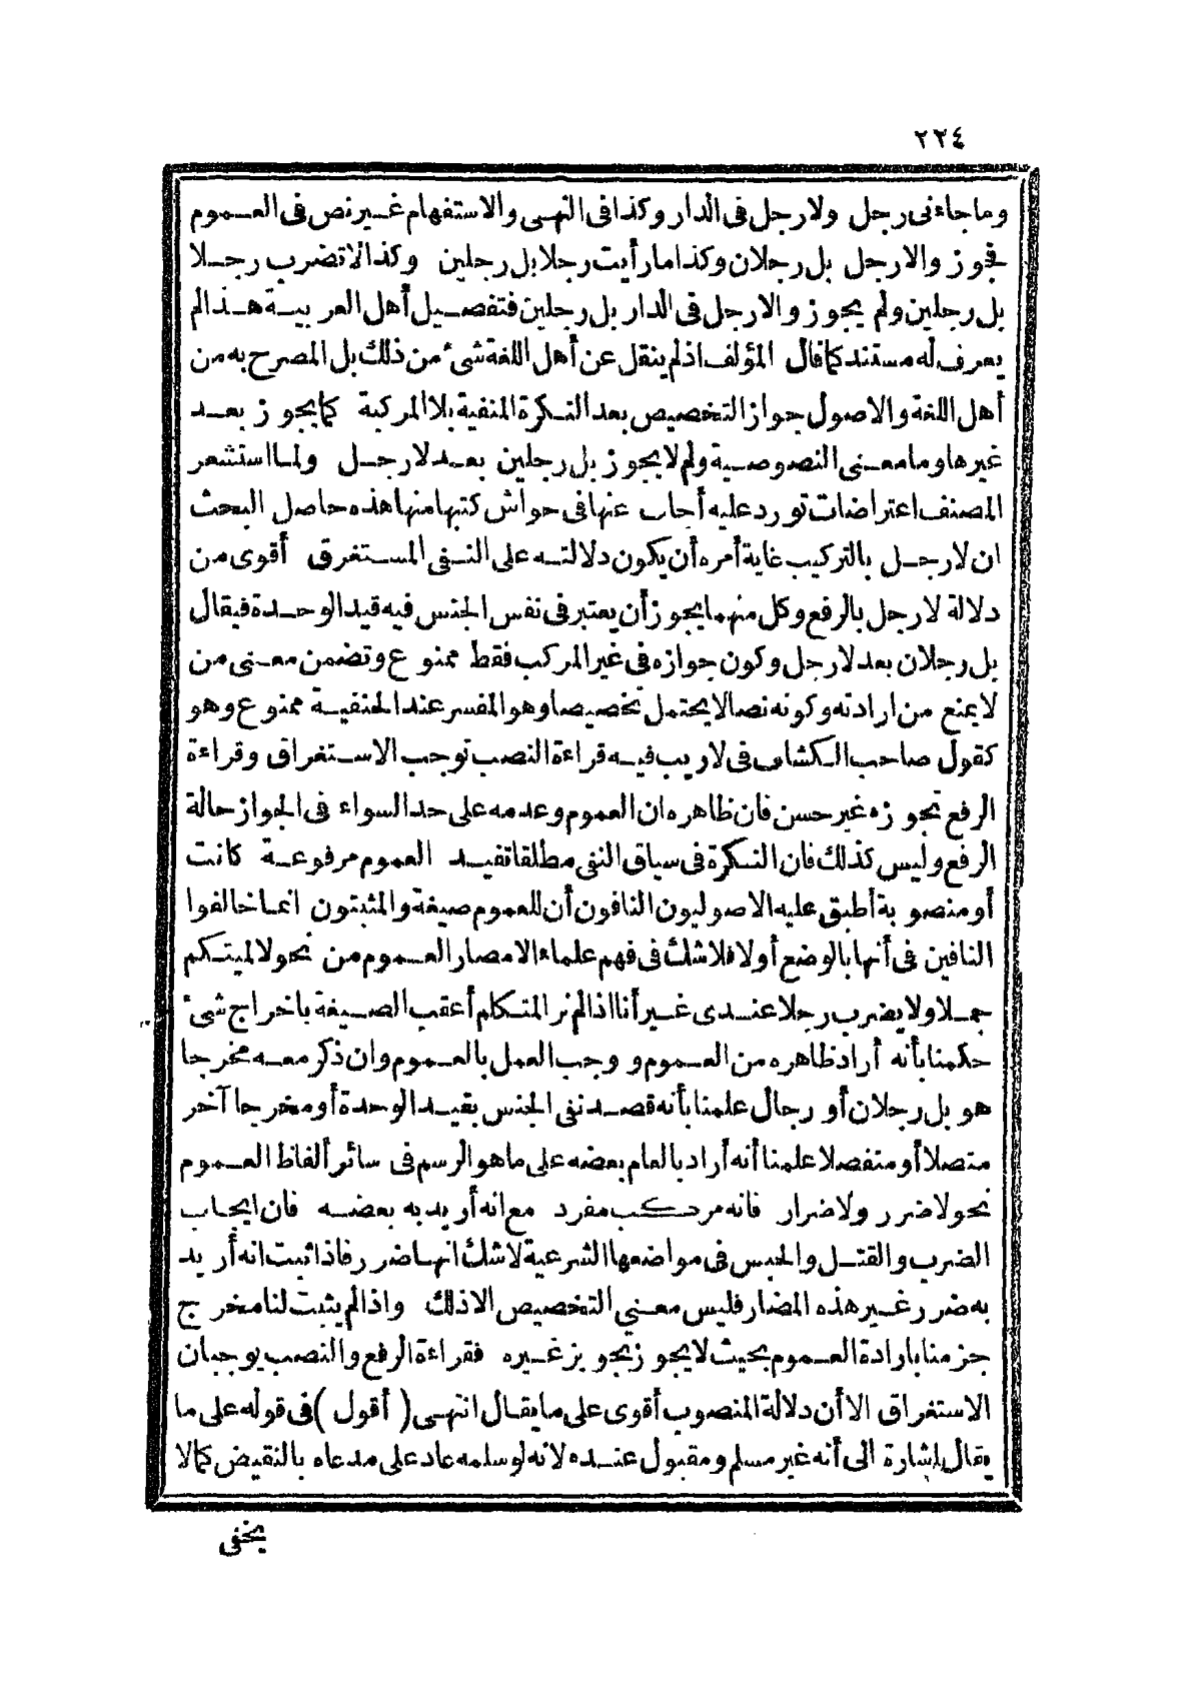 ٢٢٤
وما جاءنى رجل ولا رجل فى الدار وكذا فى النهى والاستفهام غير نص فى العموم
فجوزوا لا رجل بل رجلان وكذا ما رأيت رجلا بل رجلين وكذا لا تضرب رجلا
بل رجلين ولم يجوزوا لا رجل فى الدار بل رجلين فتفصيل أهل العربية هذا لم
يعرف له مستند كما قال المؤلف اذ لم ينقل عن أهل اللغة شئ من ذلك بل المصرح به من
أهل اللغة والاصول جواز التخصيص بعد النكرة المنفية بلا المركبة كما يجوز بعد
غيرها وما معنى النصوصية ولم لا يجوز بل رجلين بعد لا رجل ولما استشعر
المصنف اعتراضات تورد عليه أجاب عنها فى حواش كتبها منها هذه حاصل البحث
ان لا رجل بالتركيب غاية أمره أن يكون دلالته على النفى المستغرق أقوى من
دلالة لا رجل بالرفع وكل منهما يجوز أن يعتبر فى نفس الجنس فيه قيد الوحدة فيقال
بل رجلان بعد لا رجل وكون جوازه فى غير المركب فقط ممنوع وتضمن معنى من
لا يمنع من ارادته وكونه نصا لا يحتمل تخصيصا وهو المفسر عند الحنفية ممنوع وهو
كقول صاحب الكشاف فى لا ريب فيه قراءة النصب توجب الاستغراق وقراءة
الرفع تجوزه غير حسن فان ظاهره ان العموم وعدمه على حد السواء فى الجواز حالة
الرفع وليس كذلك فان النكرة فى سياق النفى مطلقا تفيد العموم مرفوعة كانت
أو منصوبة أطبق عليه الاصوليون النافون أن للعموم صيغة والمثبتون انما خالفوا
النافين فى أنها بالوضع أولا فلا شك فى فهم علماء الامصار العموم من نحو لا ميتكم
حملا ولا يضرب رجلا عندى غير أنا اذا لم نر المتكلم أعقب الصيغة باخراج شئ
حكمنا بأنه أراد ظاهره من العموم ووجب العمل بالعموم وان ذكر معه مخرجا
هو بل رجلان أو رجال علمنا بأنه قصد نفى الجنس بقيد الوحدة أو مخرجا آخر
متصلا أو منفصلا علمنا أنه أراد بالعام بعضه على ما هو الرسم فى سائر ألفاظ العموم
نحو لا ضرر ولا ضرار فانه مركب مفرد مع انه أريد به بعضه فان ايجاب
الضرب والقتل والحبس فى مواضعها الشرعية لا شك انها ضرر فاذا ثبت انه أريد
به ضرر غير هذه المضار فليس معنى التخصيص الا ذلك واذا لم يثبت لنا مخرج
جزمنا بارادة العموم بحيث لا يجوز تجويز غيره فقراءة الرفع والنصب يوجبان
الاستغراق الا أن دلالة المنصوب أقوى على ما يقال انتهى (أقول) فى قوله على ما
يقال اشارة الى أنه غير مسلم ومقبول عنده لانه لو سلمه عاد على مدعاه بالنقيض كما لا
يخفى